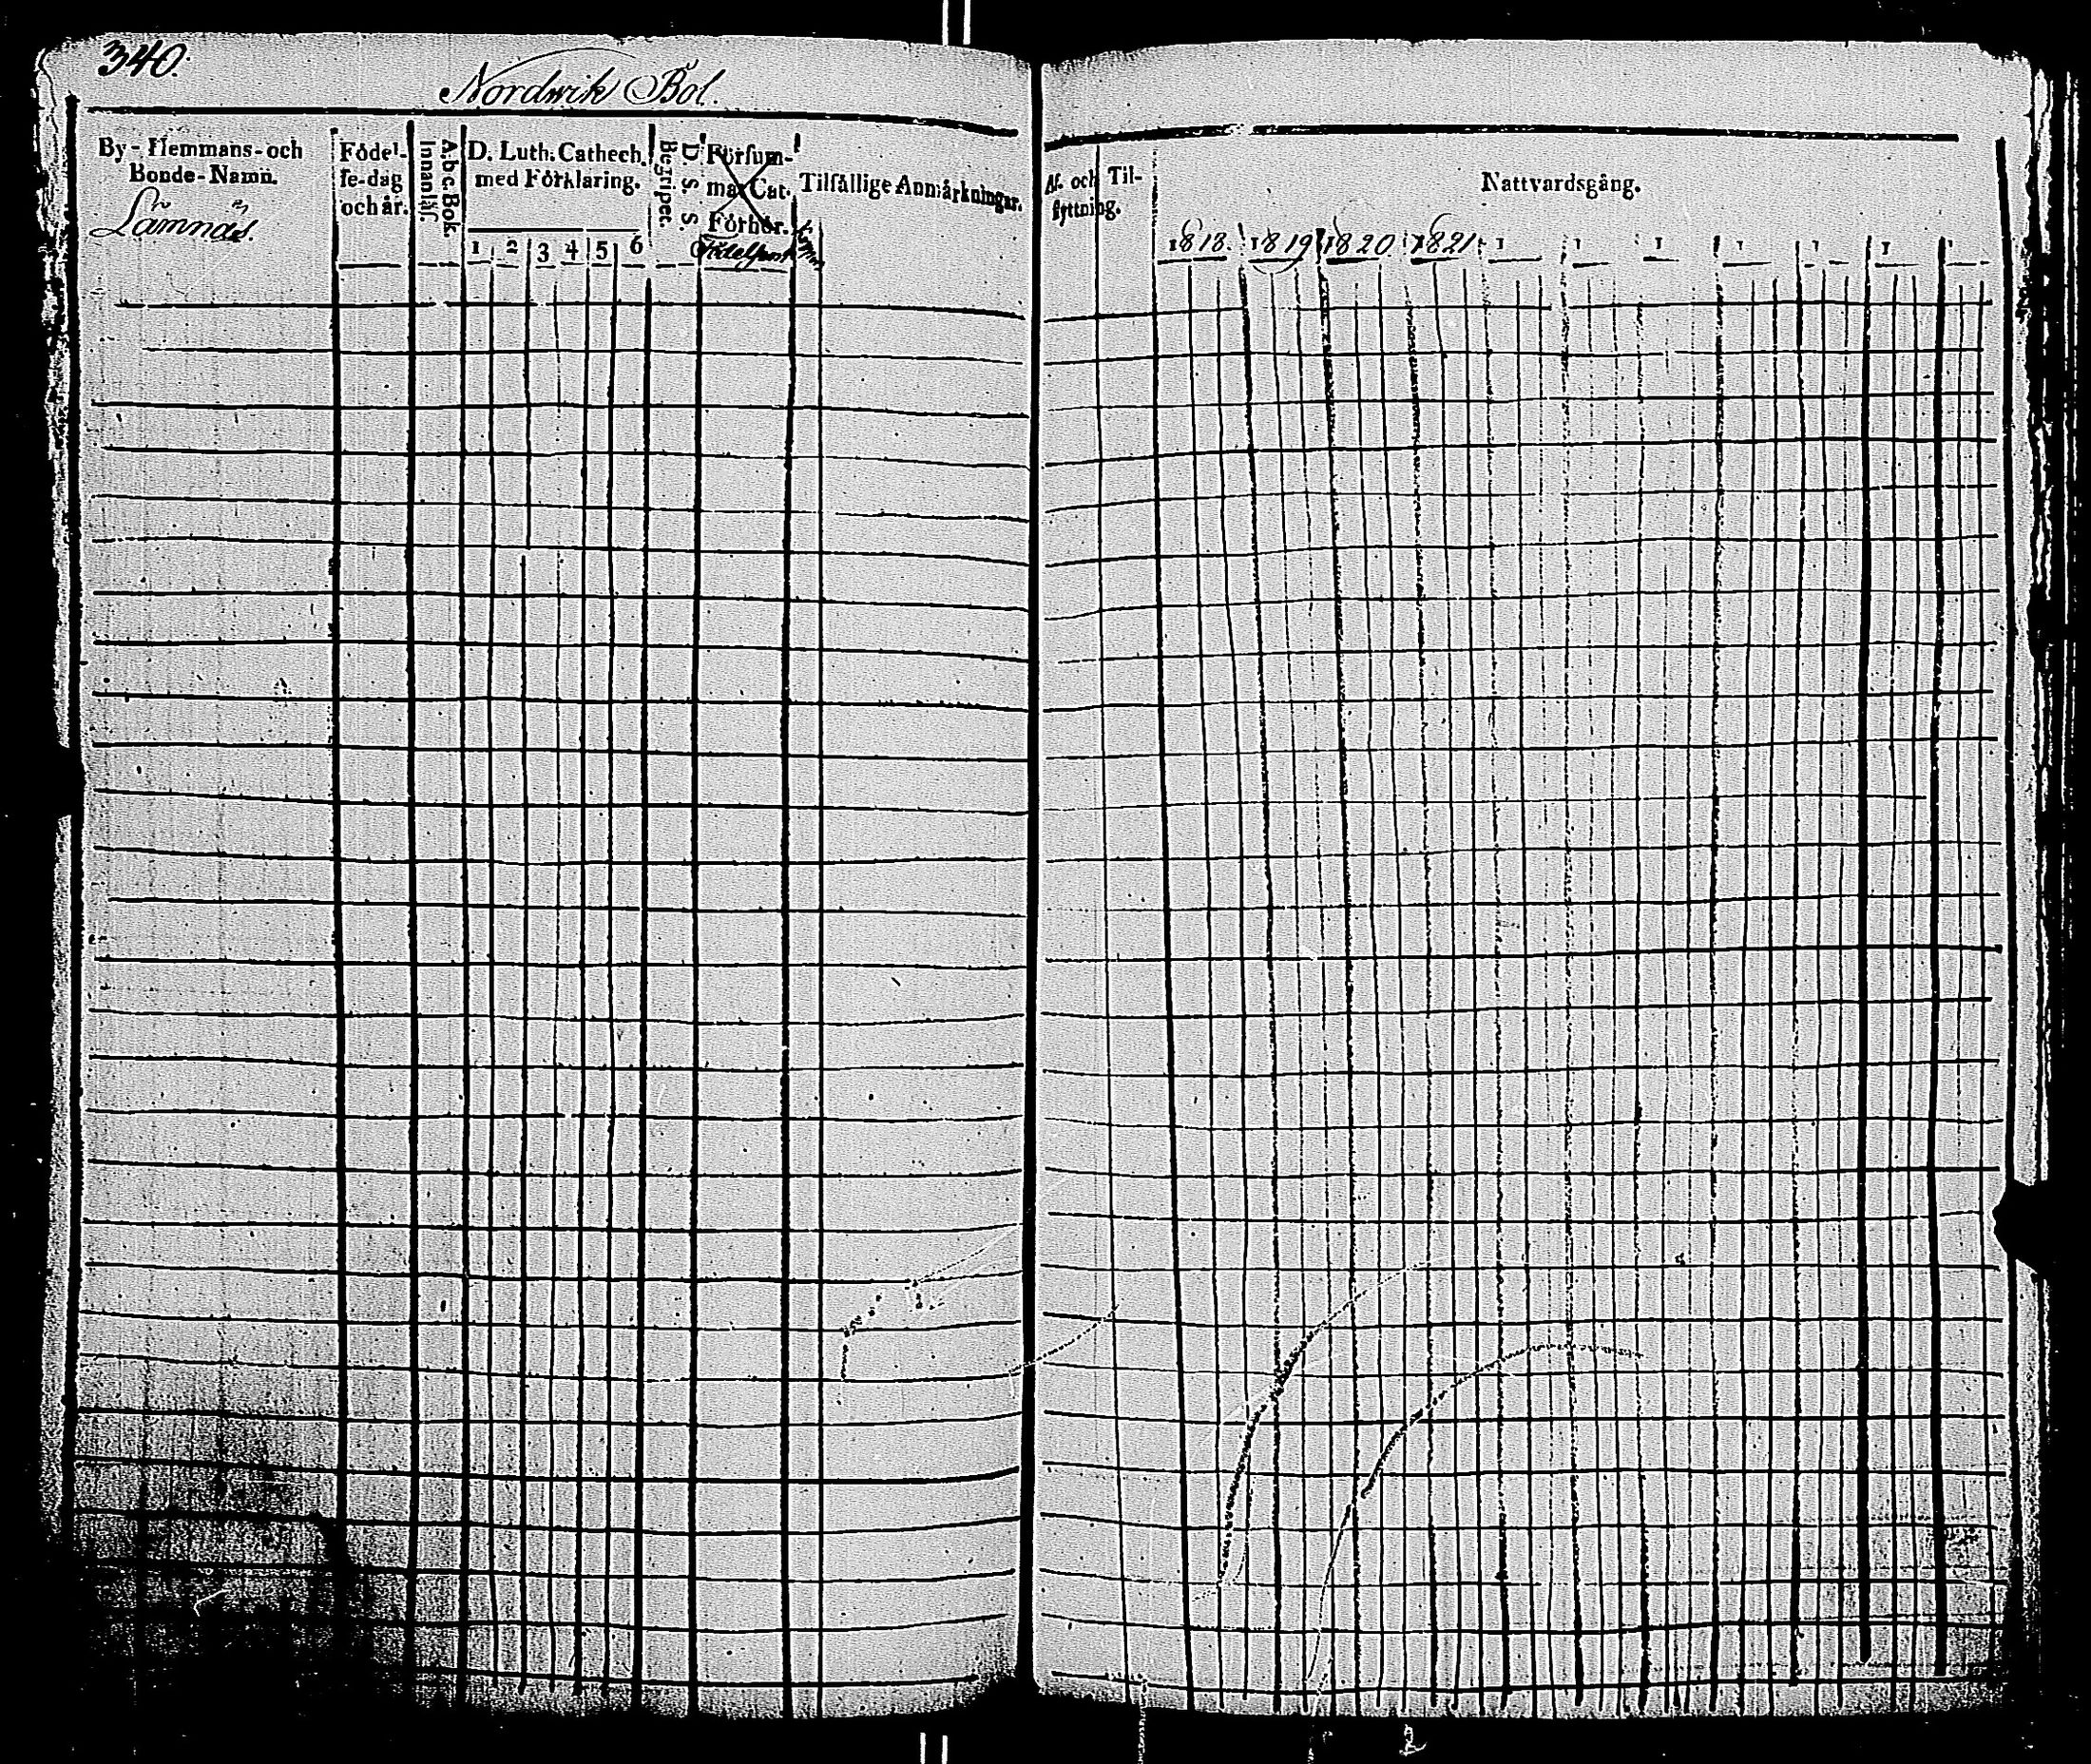 340.
Nordwik Bol.
By-Hemmans-och
Bonde-Namn.
Lamnäs.
Födel-
se-dag
och år.
A.b.c.Bok.
Innanläs.
D. Luth. Cathech.
med Förklaring.
1 2 3 4 5 6
D. S. S.
Begripet.
Försum-
ma Cat.
Förhör.
Tilfällige Anmärkningar.
Af- och Til-
flyttning.
Nattvardsgång.
1818. 1819 1820. 1821. 1 1 1 1 1 1 1
2